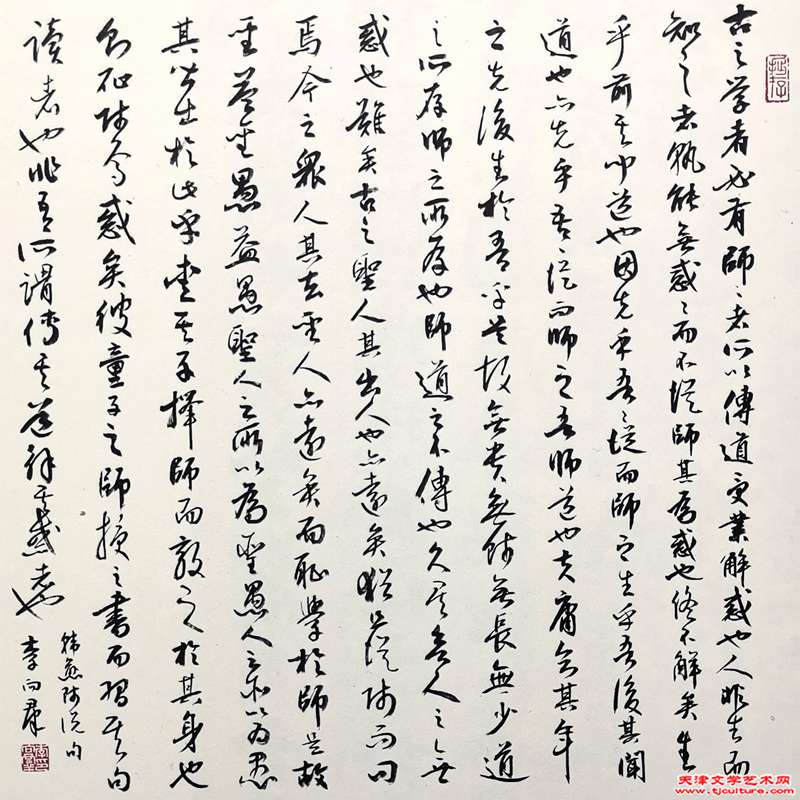 古之学者必有師〻者所以傳道受業解惑也人非生而
知之者孰能無惑〻而不從師其為惑也終不解矣生
乎前其聞道也固先乎吾〻從而師之生乎吾後其聞
道也亦先乎吾〻從而師之吾師道也夫庸知其年
之先後生於吾乎是故無貴無賤無長無少道
之所存師之所存也師道之不傳也久矣欲人之無
惑也難矣古之聖人其出人也亦遠矣猶且從師而问
焉今之衆人其去聖人亦遠矣而恥學於師是故
聖益聖愚益愚聖人之所以為聖愚人之所以为愚
其皆出於此乎愛其子擇師而教之於其身也
则恥師焉惑矣彼童子之師授之書而習其句
读者也非吾所謂傳其道解其惑者也
韓愈師说句
李向群
天津文学艺术网
www.tjculture.com